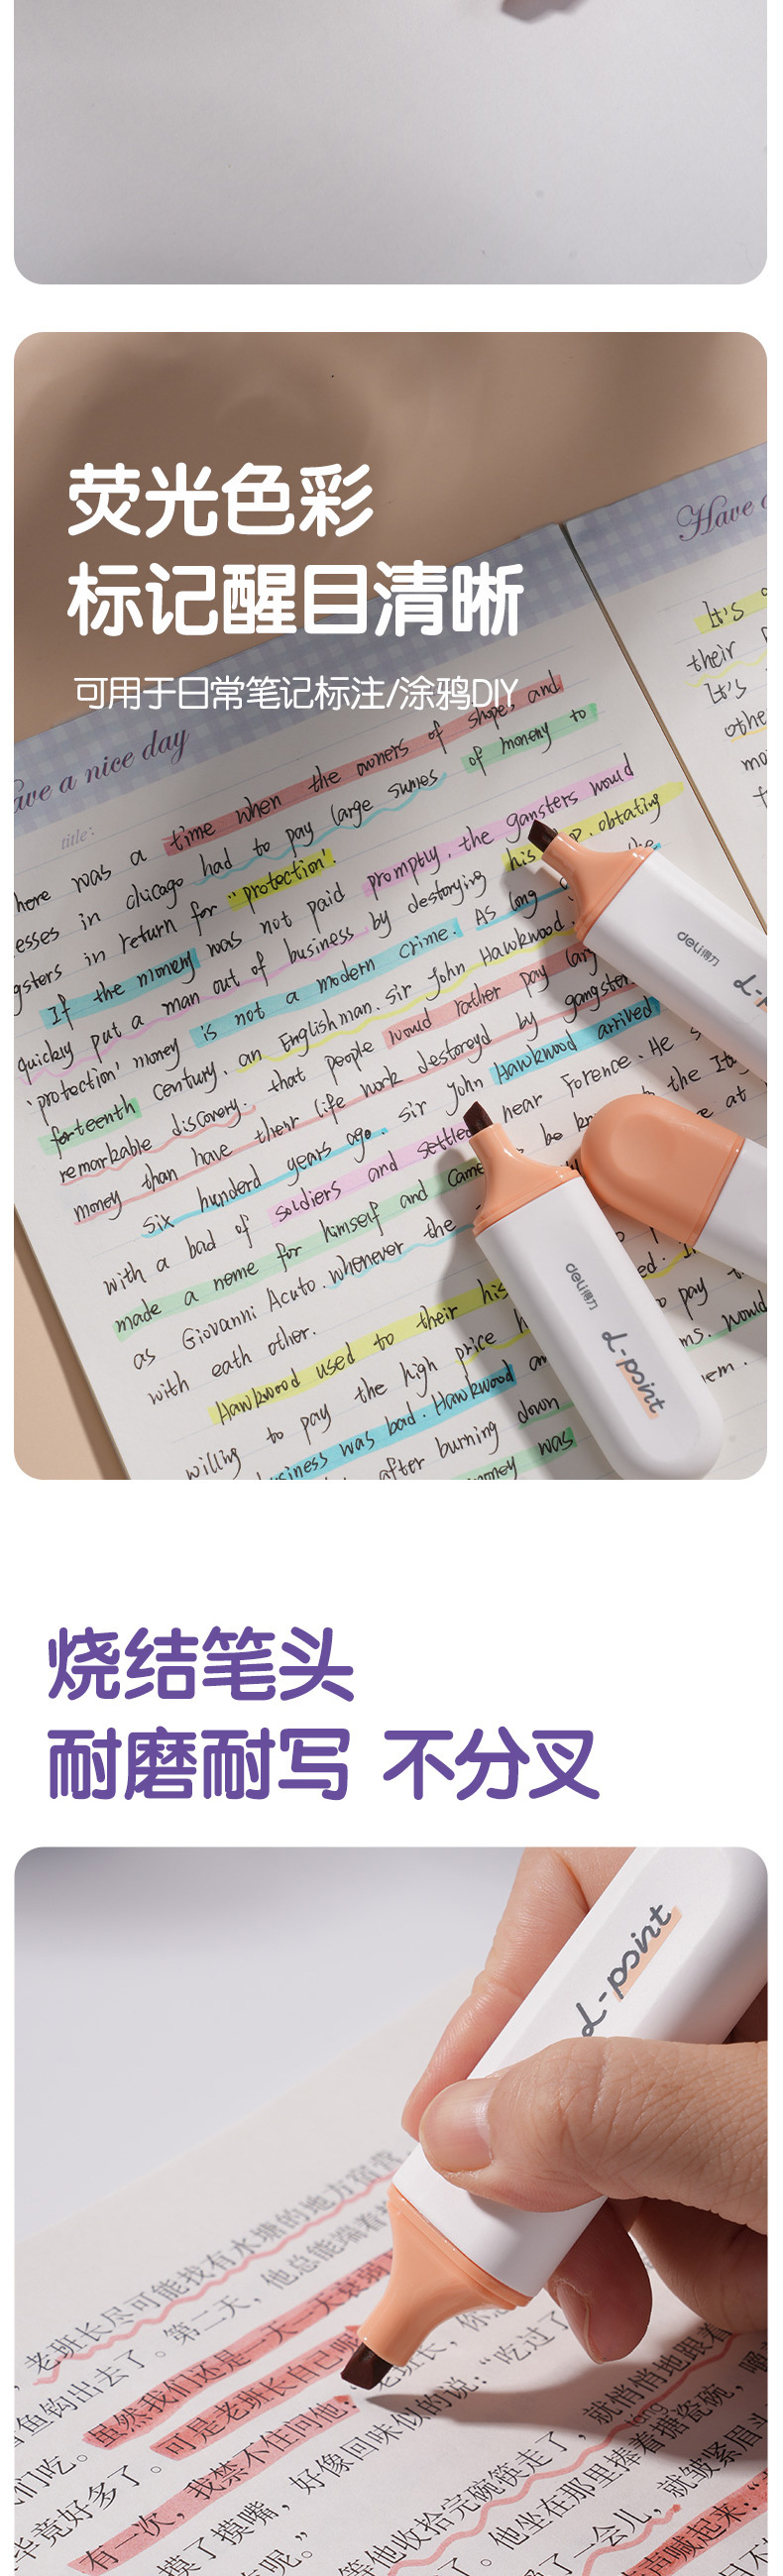 荧光色彩
标记醒目清晰
可用于日常笔记标注/涂鸦DIY
Have a
ave a nice day
title:
It's
their
It's
othe
here was a time when the owners of shope, and
esses in chicago had to pay large sumes of money to
gsters in return for "protection'.
If the money was not paid promptly, the gansters would
quickly put a man out of business by destorying his obtating
'protection' money is not a modern crime. As long
forteenth century, an Englishman. sir John Hawkwood.
remarkable discovery. that people would rather pay
money than have their life work destoroyd by gangster
six hunderd years ago. sir John Hawkwood arrived
with a bad of soldiers and settled near Forence. He
made a neme for himself and came to be the
as Giovanni Acuto. whenever the at
with eath other. to
Hawkwood used to their ed.
willing to pay the high price pay
business was bad. Hawkwood ms. would
after burning down em.
money was
deli得力
deli得力
L-point
烧结笔头
耐磨耐写 不分叉
L-point
老班长尽可能找有水塘的地方宿营
鱼钩出去了。第二天，他总能端着
们吃。虽然我们还是一天一天衰弱
毕竟好多了。可是老班长自己 老班长，
有一次，我禁不住问他： “吃过了
摸了摸嘴，好像回味似的说： 就悄悄地跟着
呢。” 等他收拾完碗筷走了，
他坐在那里捧着搪瓷碗，
táng
了一会儿，就皱紧眉头
声喊起来：